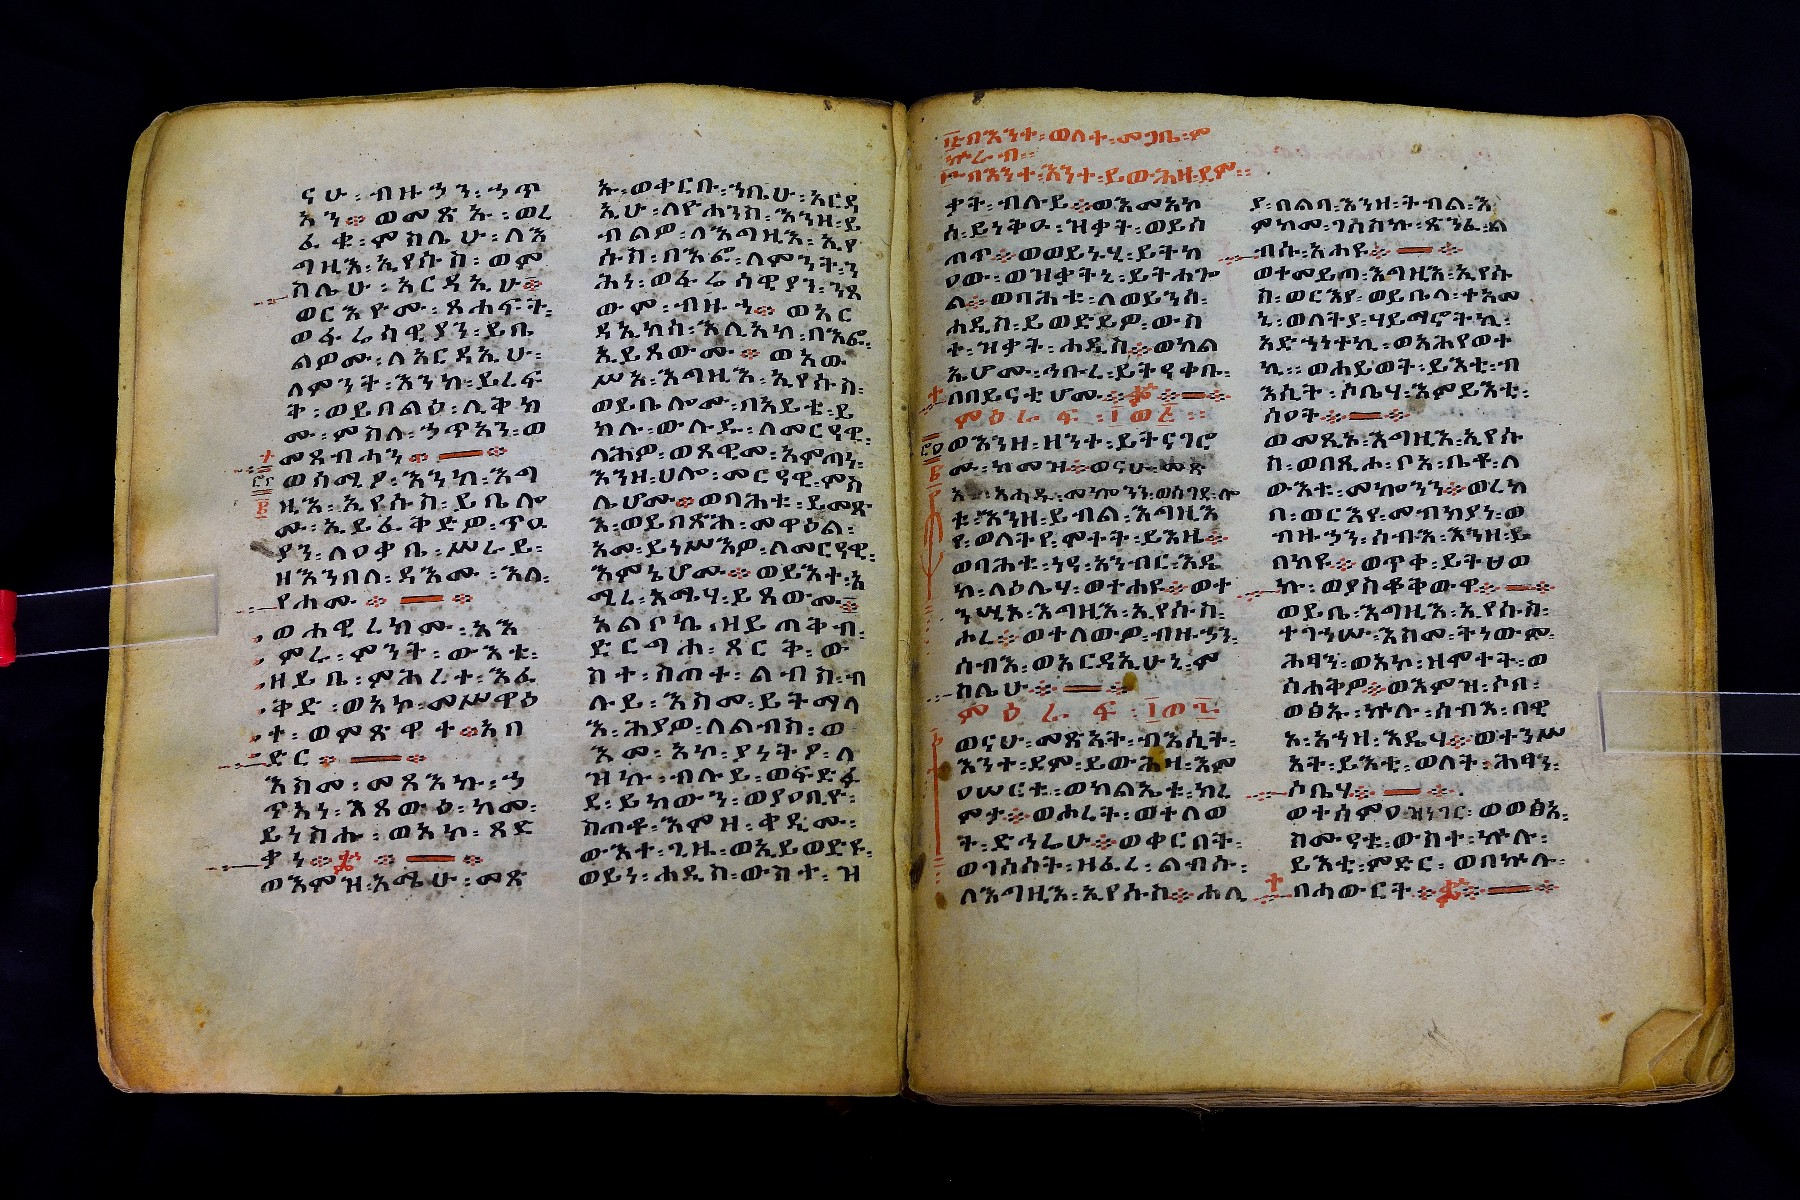 ናሁ ፡ ብዙኃን ፡ ኃጥ
አን ። ወመጽኡ ፡ ወረ
ፈቁ ፡ ምስሌሁ ፡ ለእ
ግዚእ ፡ ኢየሱስ ፡ ወም
ስሌሁ ፡ አርዳኢሁ ።
ወርእዮሙ ፡ ጸሐፍት ፡
ወፈሬሳዊያን ፡ ይቤ
ልዎሙ ፡ ለአርዳኢሁ ፡
ለምንት ፡ እንከ ፡ ይረፍ
ት ፡ ወይበልዕ ፡ ሊቅክ
ሙ ፡ ምስለ ፡ ኃጥአን ፡ ወ
መጸብሓን ።
ወሰሚዖ ፡ እንከ ፡ እግ
ዚእ ፡ ኢየሱስ ፡ ይቤሎ
ሙ ፡ ኢይፈቅድዎ ፡ ጥዑ
ያን ፡ ለዐቃቤ ፡ ሥራይ ፡
ዘእንበለ ፡ ዳእሙ ፡ እለ ፡
የሐሙ ።
ወሐዊረክሙ ፡ አእ
ምሩ ፡ ምንት ፡ ውእቱ ፡
ዘይቤ ፡ ምሕረተ ፡ እፈ
ቅድ ፡ ወአኮ ፡ መሥዋዕ
ተ ፡ ወምጽዋተ ። አበ
ድር ።
እስመ ፡ መጻእኩ ፡ ኃ
ጥአነ ፡ እጸውዕ ፡ ከመ ፡
ይነስሑ ፡ ወአኮ ፡ ጻድ
ቃነ ።
ወእምዝ ፡ አሜሁ ፡ መጽ
ኡ ፡ ወቀርቡ ፡ ኀቤሁ ፡ አርዳ
ኢሁ ፡ ለዮሐንስ ፡ እንዘ ፡ ይ
ብልዎ ፡ ለእግዚእ ፡ ኢየ
ሱስ ፡ በእፎ ፡ ለምንት ፡ ን
ሕነ ፡ ወፈሬሳዊያን ፡ ንጸ
ውም ፡ ብዙኀ ። ወአር
ዳኢከሰ ፡ እሊአከ ፡ በእፎ ፡
ኢይጸውሙ ። ወአው
ሥአ ፡ እግዚእ ፡ ኢየሱስ ፡
ወይቤሎሙ ፡ በአይቴ ፡ ይ
ክሉ ፡ ውሉዱ ፡ ለመርዓዊ ፡
ላሕዎ ፡ ወጸዊመ ፡ አምጣነ ፡
እንዘ ፡ ሀሎ ፡ መርዓዊ ፡ ምስ
ሌሆሙ ። ወባሕቱ ፡ ይመጽ
እ ፡ ወይበጽሕ ፡ መዋዕል ፡
አመ ፡ ይነሥእዎ ፡ ለመርዓዊ ፡
እምኔሆሙ ። ወይእተ ፡ አ
ሚረ ፡ አሜሃ ፡ ይጸውሙ ።
አልቦኬ ፡ ዘይጠቅብ ፡
ድርግሐ ፡ ጸርቅ ፡ ው
ስተ ፡ ስጠተ ፡ ልብስ ፡ ብ
ሉይ ፡ እስመ ፡ ይትማላ
እ ፡ ሕያዎ ፡ ለልብስ ፡ ወ
እመ ፡ አኮ ፡ ያነትዖ ፡ ለ
ዝኩ ፡ ብሉይ ፡ ወፍድፋ
ደ ፡ ይከውን ፡ ወያዐቢዮ ፡
ስጠቶ ፡ እምዘ ፡ ቀዲሙ ፡
ውእተ ፡ ጊዜ ፡ ወኢይወድዩ ፡
ወይነ ፡ ሐዲስ ፡ ውስተ ፡ ዝ
በእንተ ፡ ወለተ ፡ መጋቤ ፡ ም
ኵራብ ።
በእንተ ፡ እንተ ፡ ይውሕዛ ፡ ደም ።
ቃት ፡ ብሉይ ። ወእመአከ
ሰ ፡ ይነቅዑ ፡ ዝቃት ፡ ወይሰ
ጠጥ ። ወወይኑሂ ፡ ይትከ
ዐው ፡ ወዝቃትኒ ፡ ይትሐጐ
ል ። ወባሕቱ ፡ ለወይንሰ ፡
ሐዲስ ፡ ይወድይዎ ፡ ውስ
ተ ፡ ዝቃት ፡ ሐዲስ ። ወክል
ኤሆሙ ፡ ኅቡረ ፡ ይትዓቀቡ ፡
በበይናቲሆሙ ።
ምዕራፍ ፡ ፲ወ፭ ።
ወእንዘ ፡ ዘንተ ፡ ይትናገሮ
ሙ ፡ ከመዝ ። ወናሁ ፡ መጽ
አ ፡ አሐዱ ፡ መኰንን ፡ ወሰገደ ፡ ሎ
ቱ ፡ እንዘ ፡ ይብል ፡ እግዚእ
የ ፡ ወለትየ ፡ ሞተት ፡ ይእዜ ።
ወባሕቱ ፡ ነዓ ፡ አንብር ፡ እዴ
ከ ፡ ለዕሌሃ ፡ ወተሐዩ ። ወተ
ንሢኦ ፡ እግዚእ ፡ ኢየሱስ ፡
ሖረ ። ወተለውዎ ፡ ብዙኃን ፡
ሰብእ ፡ ወአርዳኢሁኒ ፡ ም
ስሌሁ ።
ምዕራፍ ፡ ፲ወ፯ ።
ወናሁ ፡ መጽአት ፡ ብእሲት ፡
እንተ ፡ ደም ፡ ይውሕዛ ፡ እም
ዐሠርቱ ፡ ወክልኤቱ ፡ ክረ
ምታ ። ወሖረት ፡ ወተለወ
ት ፡ ድኅሬሁ ። ወቀርበት ፡
ወገሰሰት ፡ ዘፈረ ፡ ልብሱ ፡
ለእግዚእ ፡ ኢየሱስ ። ሐሊ
ያ ፡ በልባ ፡ እንዘ ፡ ትብል ፡ እ
ምከመ ፡ ገሰስኩ ፡ ጽንፈ ፡ ል
ብሱ ፡ አሐዩ ።
ወተመይጠ ፡ እግዚእ ፡ ኢየሱ
ስ ፡ ወርእያ ፡ ወይቤላ ፡ ተአመ
ኒ ፡ ወለትያ ፡ ሃይማኖትኪ ፡
አድኀነተኪ ፡ ወአሕየወተ
ኪ ። ወሐይወት ፡ ይእቲ ፡ ብ
እሲት ፡ ሶቤሃ ፡ እምይእቲ ፡
ሰዐት ።
ወመጺኦ ፡ እግዚእ ፡ ኢየሱ
ስ ፡ ወበጺሖ ፡ ቦአ ፡ ቤቶ ፡ ለ
ውእቱ ፡ መኰንን ። ወረከ
በ ፡ ወርእየ ፡ መብክያነ ፡ ወ
ብዙኃን ፡ ሰብአ ፡ እንዘ ፡ ይ
በክዩ ። ወጥቀ ፡ ይትሀወ
ኩ ፡ ወያስቆቅውዋ ።
ወይቤ ፡ እግዚእ ፡ ኢየሱስ ፡
ተገኀሡ ፡ እስመ ፡ ትነውም ፡
ሕፃን ፡ ወአኮ ፡ ዘሞተት ፡ ወ
ሰሐቅዎ ። ወእምዝ ፡ ሶበ ፡
ወፅኡ ፡ ኵሉ ፡ ሰብእ ፡ ቦዊ
ኦ ፡ አኀዘ ፡ እዴሃ ። ወተንሥ
አት ፡ ይእቲ ፡ ወለት ፡ ሕፃን ፡
ሶቤሃ ።
ወተሰምዐ ፡ ዝነገር ፡ ወወፅአ ፡
ስሙዓቲ ፡ ውስተ ፡ ኵሉ ፡
ይእቲ ፡ ምድር ፡ ወበኵሉ ፡
በሓውርት ።